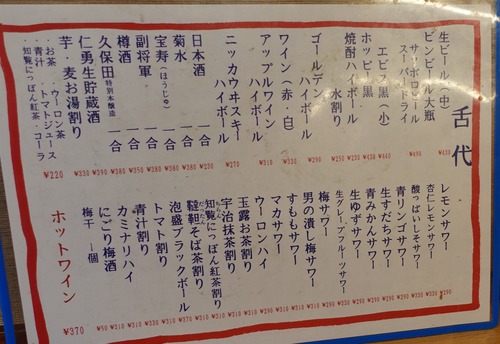 舌代
生ビール(中) ¥430
ビンビール大瓶
サッポロビール
スーパードライ ¥490
エビス黒(小) ¥440
ホッピー黒 ¥430
焼酎ハイボール ¥250
水割り ¥250
ゴールデン
ハイボール ¥290
ワイン(赤・白) ¥330
アップルワイン
ハイボール ¥310
ニッカウヰスキー
ハイボール ¥270
日本酒 一合 ¥230
菊水 一合 ¥380
宝寿(ほうじゅ) 一合
副将軍 一合
樽酒 一合
久保田 特別本醸造 一合
仁勇生貯蔵酒 ¥390
芋・麦お湯割り ¥330
・お茶・ウーロン茶
・青汁・トマトジュース
・知覧にっぽん紅茶・コーラ
¥220
レモンサワー ¥290
杏仁レモンサワー
酸っぱいしそサワー
青リンゴサワー
生すだちサワー
青みかんサワー
生ゆずサワー
生グレープフルーツサワー
梅サワー
男の潰し梅サワー
すももサワー
マカサワー
ウーロンハイ
玉露お茶割り
宇治抹茶割り
知覧にっぽん紅茶割り
韃靼そば茶割り
泡盛ブラックボール
トマト割り
青汁割り
カミナリハイ
にごり梅酒 ¥310
梅干 一個 ¥90
ホットワイン ¥370